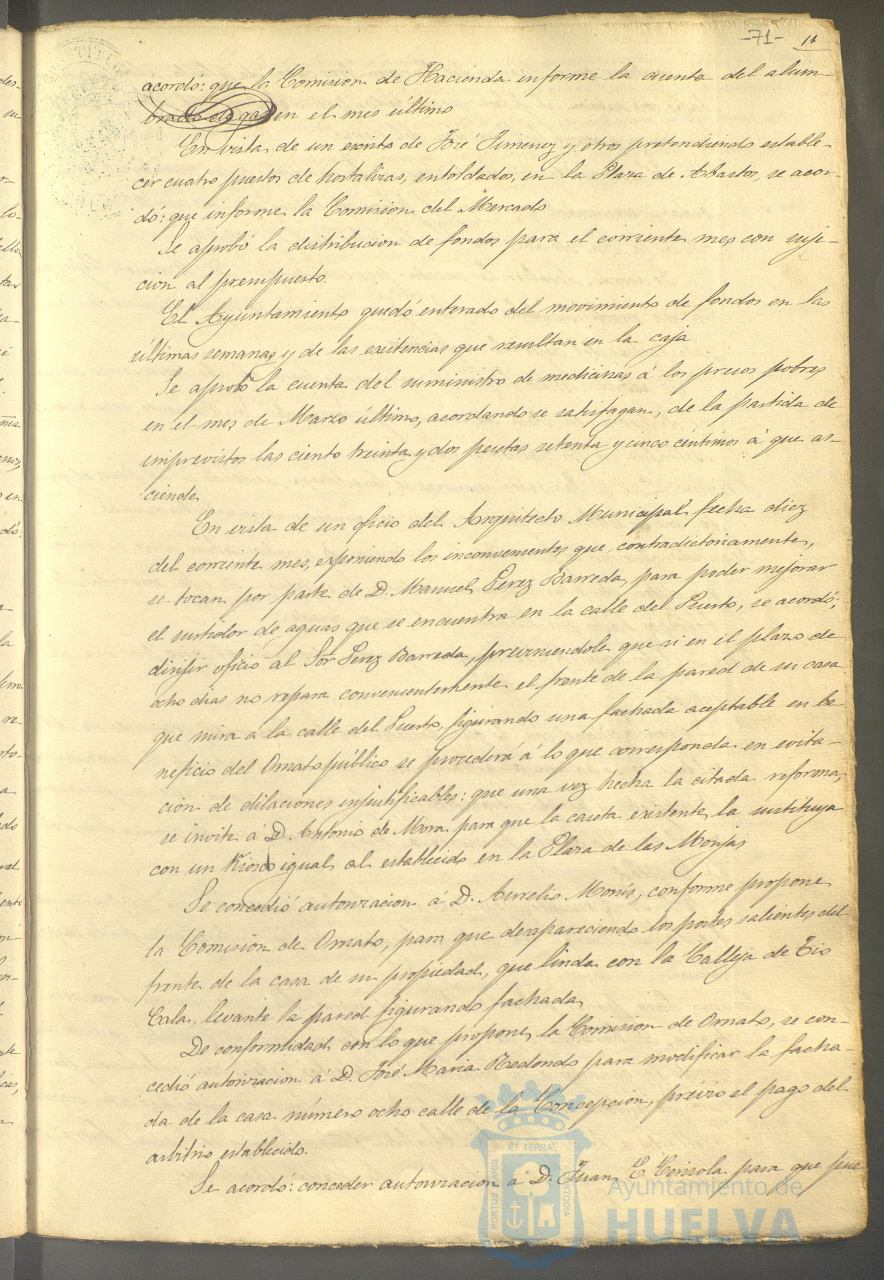 -71- 11
acordó: que la Comision de Hacienda informe la cuenta del alum-
brado de gas en el mes último
En vista de un escrito de José Jimenez y otros pretendiendo estable-
cer cuatro puestos de hortalizas, entoldados, en la Plaza de Abastos, se acor-
dó: que informe la Comision del Mercado
Se aprobó la distribucion de fondos para el corriente mes con suje-
cion al presupuesto.
El Ayuntamiento quedó enterado del movimiento de fondos en las
últimas semanas y de las existencias que resultan en la caja
Se aprobó la cuenta del suministro de medicinas á los presos pobres
en el mes de Marzo último, acordando se satisfagan, de la partida de
imprevistos las ciento treinta y dos pesetas setenta y cinco céntimos á que as-
ciende
En vista de un oficio del Arquitecto Municipal fecha diez
del corriente mes, exponiendo los inconvenientes que, contradictoriamente,
se tocan por parte de D. Manuel Perez Barreda, para poder mejorar
el surtidor de aguas que se encuentra en la calle del Puerto, se acordó;
dirijir oficio al Sor Perez Barreda, previniendole que si en el plazo de
ocho dias no repara convenientemente el frente de la pared de su casa
que mira á la calle del Puerto, figurando una fachada aceptable en be-
neficio del Ornato público se procederá á lo que corresponda en evita-
cion de dilaciones injustificables: que una vez hecha la citada reforma,
se invite á D. Antonio de Mora para que la caseta existente la sustituya
con un Kiosco igual al establecido en la Plaza de las Monjas
Se concedió autorizacion á D. Aurelio Monis, conforme propone
la Comision de Ornato, para que desapareciendo los postes salientes del
frente de la casa de su propiedad, que linda con la Calleja de Tio
Cala, levante la pared figurando fachada
De conformidad con lo que propone la Comision de Ornato, se con-
cedió autorizacion á D. José Maria Redondo para modificar la facha-
da de la casa número ocho calle de la Concepcion, prévio el pago del
arbitrio establecido.
Se acordó: conceder autorizacion á D. Juan E Corisola para que pue
PORTUS MARIS ET TERRAE CUSTODIA
Ayuntamiento de
HUELVA